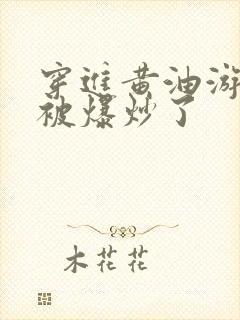 穿進黄油游
被爆炒了
木花花